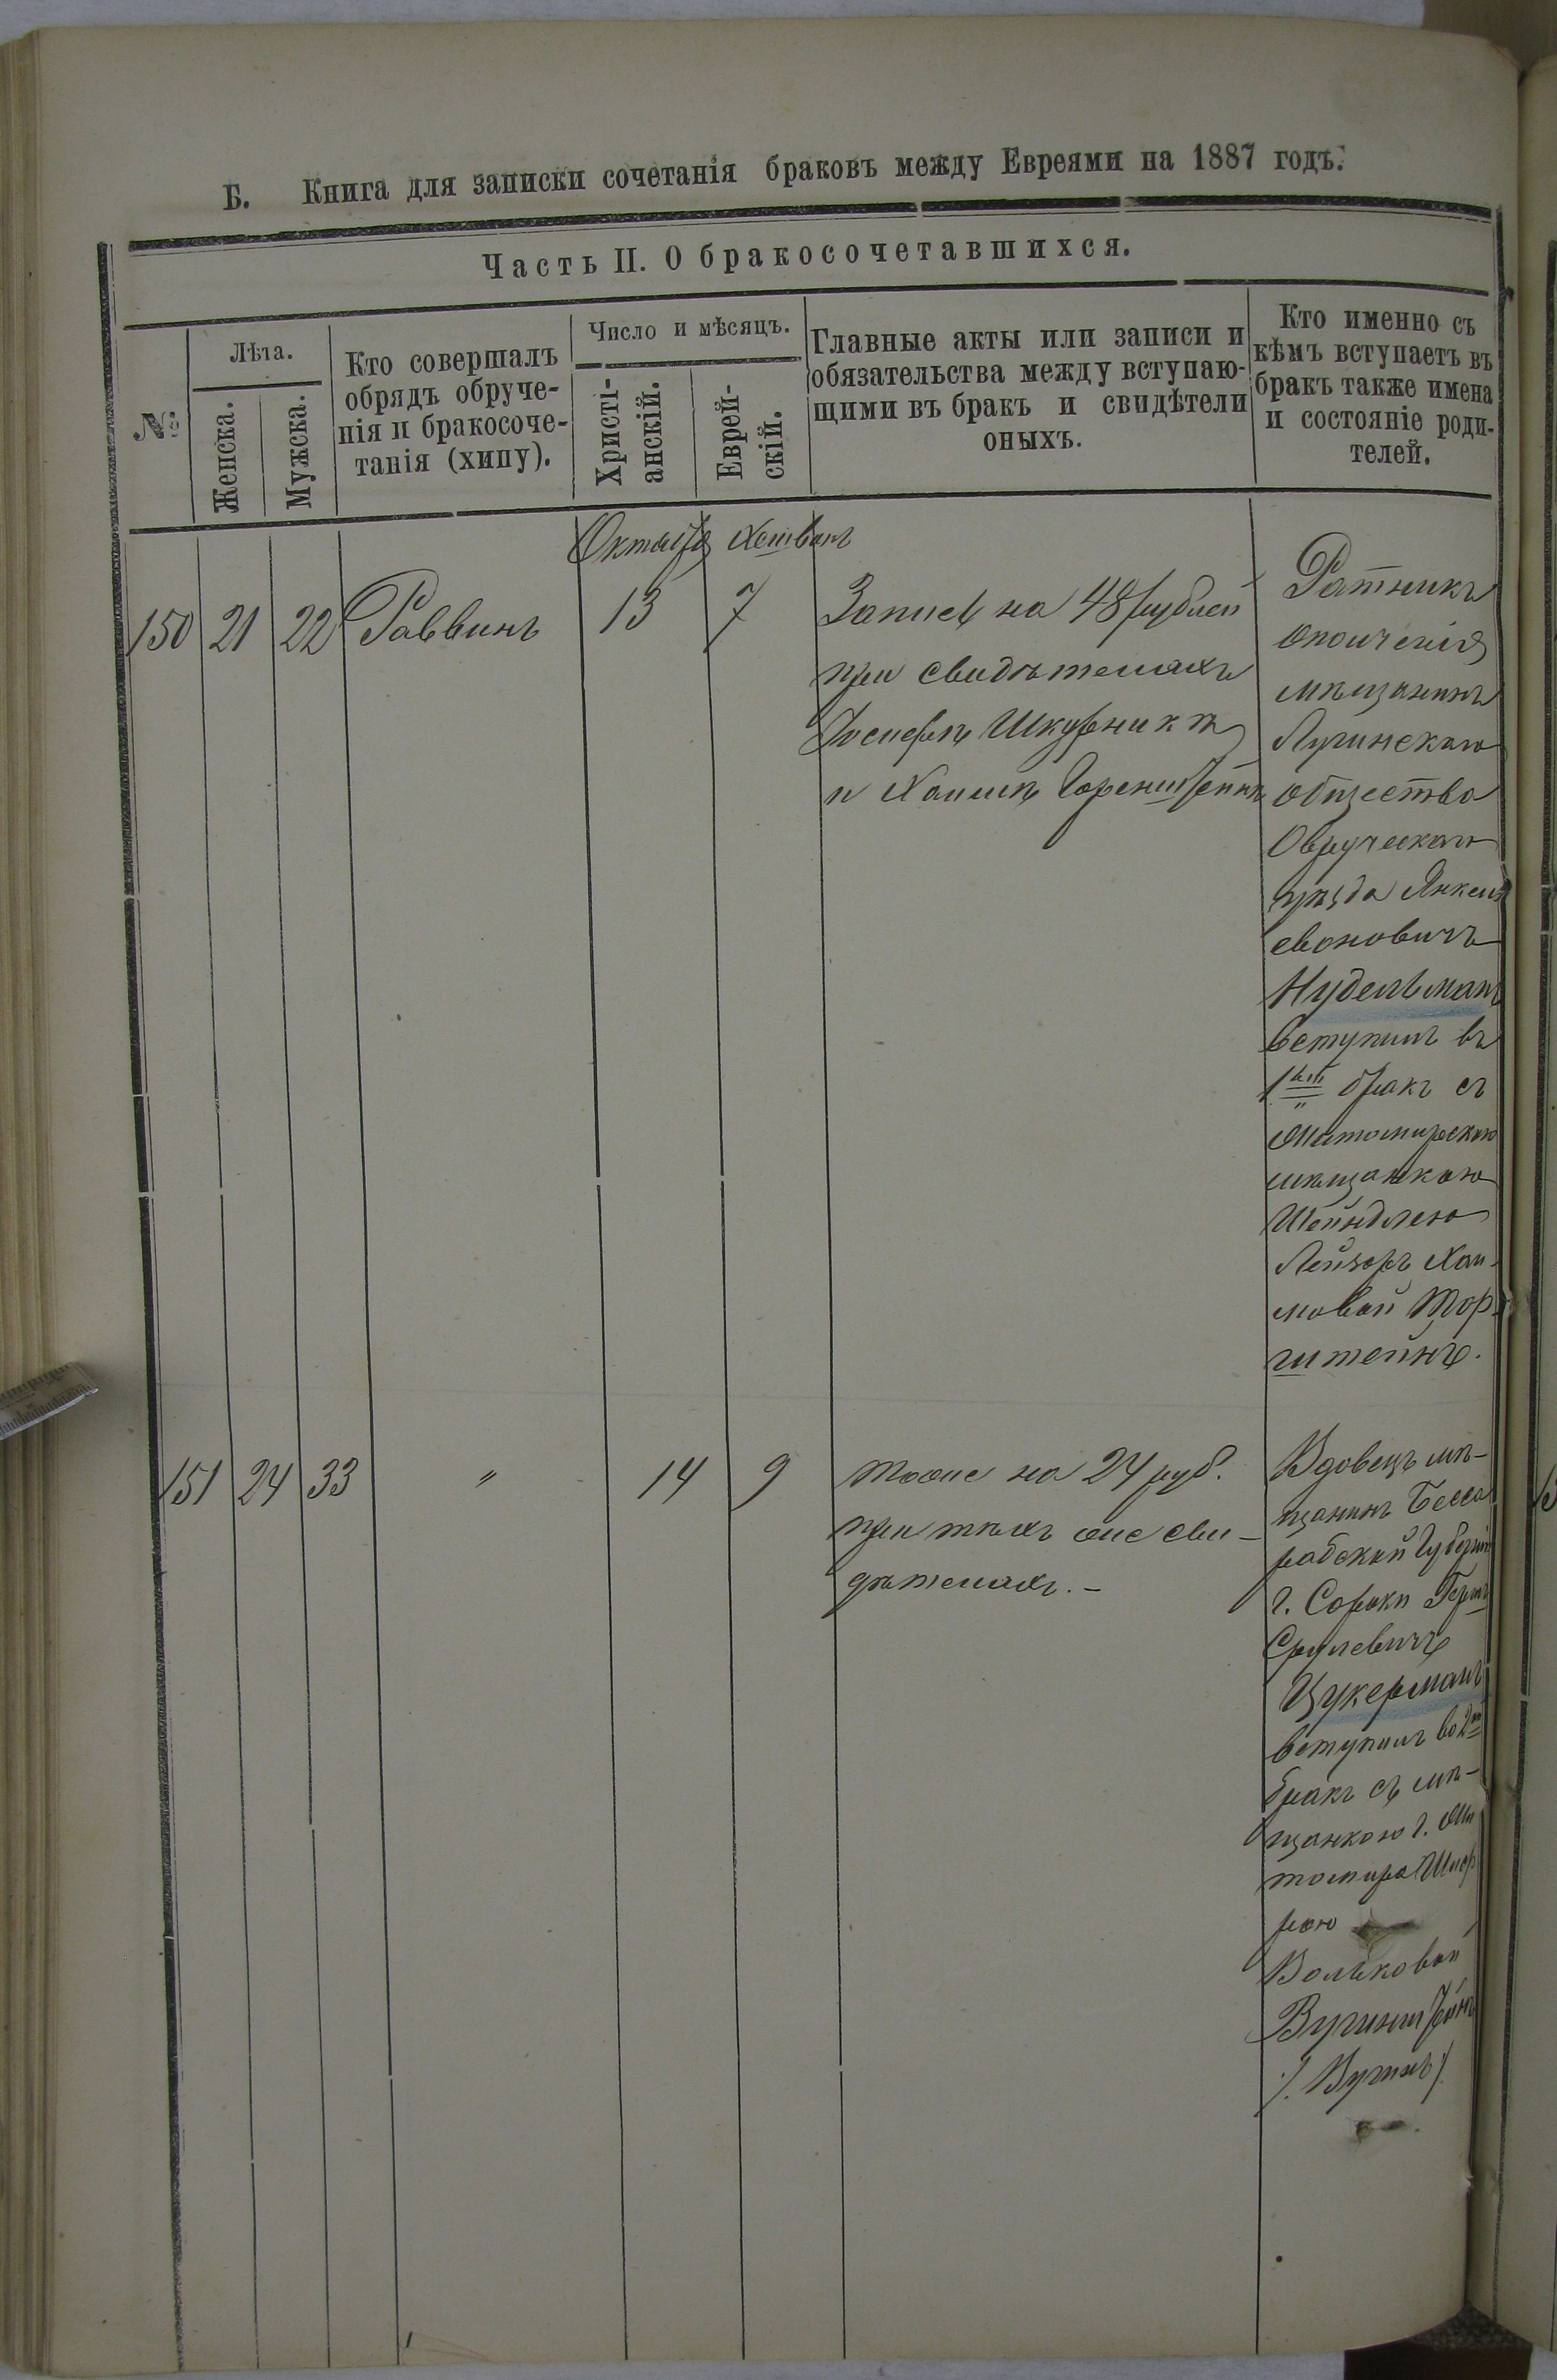 Б. Книга для записки сочетанія браковъ между Евреями на 1887 годъ.
Часть II. О бракосочетавшихся.
№
Лѣта.
Женска.
Мужска.
Кто совершалъ
обрядъ обруче-
нія и бракосоче-
танія (хипу).
Число и мѣсяцъ.
Христі-
анскій.
Еврей-
скій.
Главные акты или записи и
обязательства между вступаю-
щими въ бракъ и свидѣтели
оныхъ.
Кто именно съ
кѣмъ вступаетъ въ
бракъ также имена
и состояніе роди-
телей.
Октября Хешванъ
150 21 22 Раввинъ 13 7
Запись на 48 рублей
при свидѣтеляхъ
Іосифѣ Шкурникѣ
и Хаимѣ Горенштейнѣ
Ратникъ
ополченія
мѣщанинъ
Лугинскаго
общества
Овручскаго
уѣзда Янкель
Нудельманъ
вступилъ въ
1ый бракъ съ
Житомирскою
мѣщанкою
Шейндлею
Лейзоръ Хаи-
мовой Тор-
штейнъ.
151 24 33 " 14 9
Тоже на 24 руб.
при тѣхъ же сви-
дѣтеляхъ. -
Вдовецъ мѣ-
щанинъ Бесса
рабской Губерніи
г. Сороки Герш
Срулевичъ
Цукерманъ
вступилъ во 2й
бракъ съ мѣ-
щанкою г. Жи
томира Шиф
рою
Вольковой
Вугинштейнъ
/. Вугинъ /.